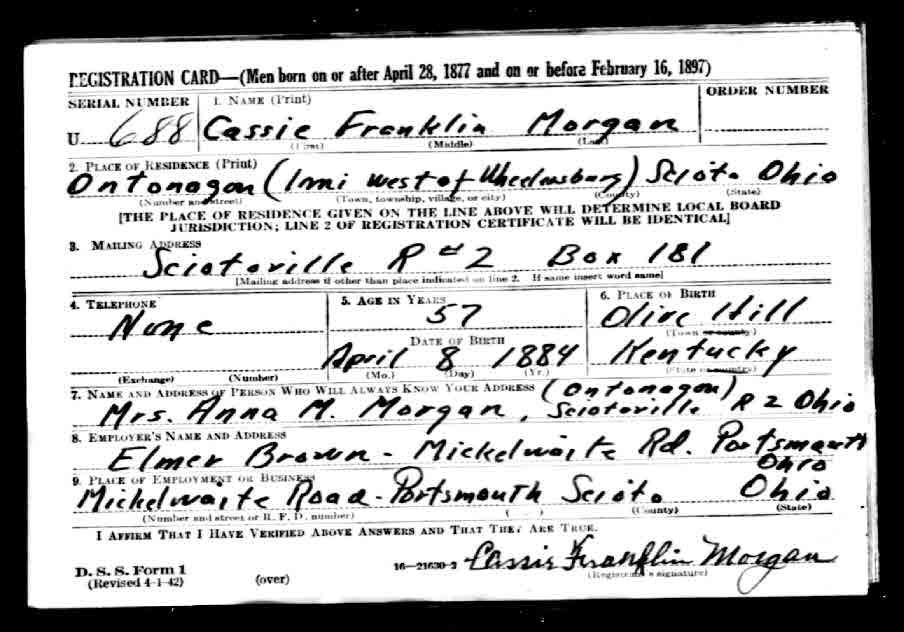 REGISTRATION CARD—(Men born on or after April 28, 1877 and on or before February 16, 1897)
SERIAL NUMBER 1. NAME (Print) ORDER NUMBER
U 688 Cassie Franklin Morgan
(First) (Middle) (Last)
2. PLACE OF RESIDENCE (Print)
Ontonagon (1 mi west of Wheelersburg) Scioto Ohio
(Number and street) (Town, township, village, or city) (County) (State)
[THE PLACE OF RESIDENCE GIVEN ON THE LINE ABOVE WILL DETERMINE LOCAL BOARD
JURISDICTION; LINE 2 OF REGISTRATION CERTIFICATE WILL BE IDENTICAL]
3. MAILING ADDRESS
Sciotoville R #2 Box 181
[Mailing address if other than place indicated on line 2. If same insert word same]
4. TELEPHONE 5. AGE IN YEARS 6. PLACE OF BIRTH
None 57 Olive Hill
DATE OF BIRTH (Town or county)
April 8 1884 Kentucky
(Exchange) (Number) (Mo.) (Day) (Yr.) (State or country)
7. NAME AND ADDRESS OF PERSON WHO WILL ALWAYS KNOW YOUR ADDRESS (Ontonagon)
Mrs. Anna M. Morgan, Sciotoville R 2 Ohio
8. EMPLOYER'S NAME AND ADDRESS
Elmer Brown - Mickelwaite Rd. Portsmouth
Ohio
9. PLACE OF EMPLOYMENT OR BUSINESS
Mickelwaite Road - Portsmouth Scioto Ohio
(Number and street or R. F. D. number) (County) (State)
I AFFIRM THAT I HAVE VERIFIED ABOVE ANSWERS AND THAT THEY ARE TRUE.
D. S. S. Form 1
(Revised 4-1-42) (over) 16—21630-2 Cassie Franklin Morgan
(Registrant's signature)